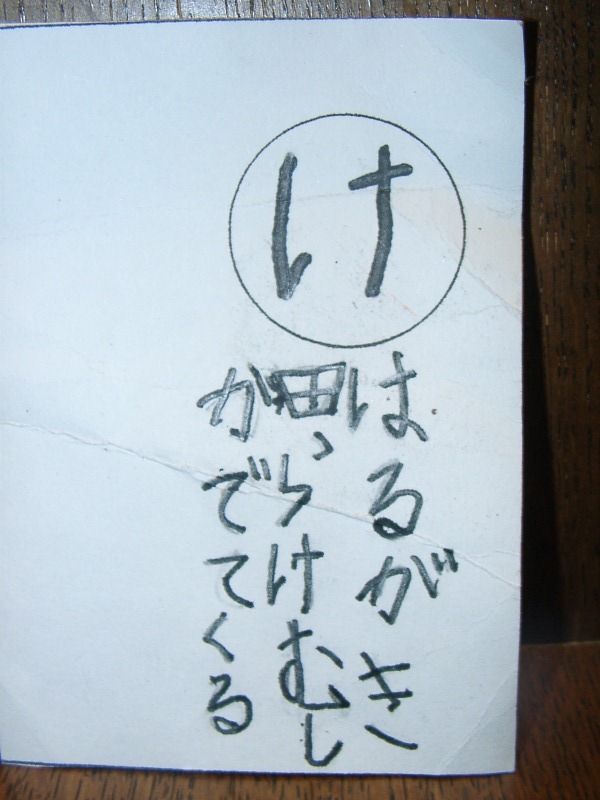 け
はるがき
田らけむし
がでてくる